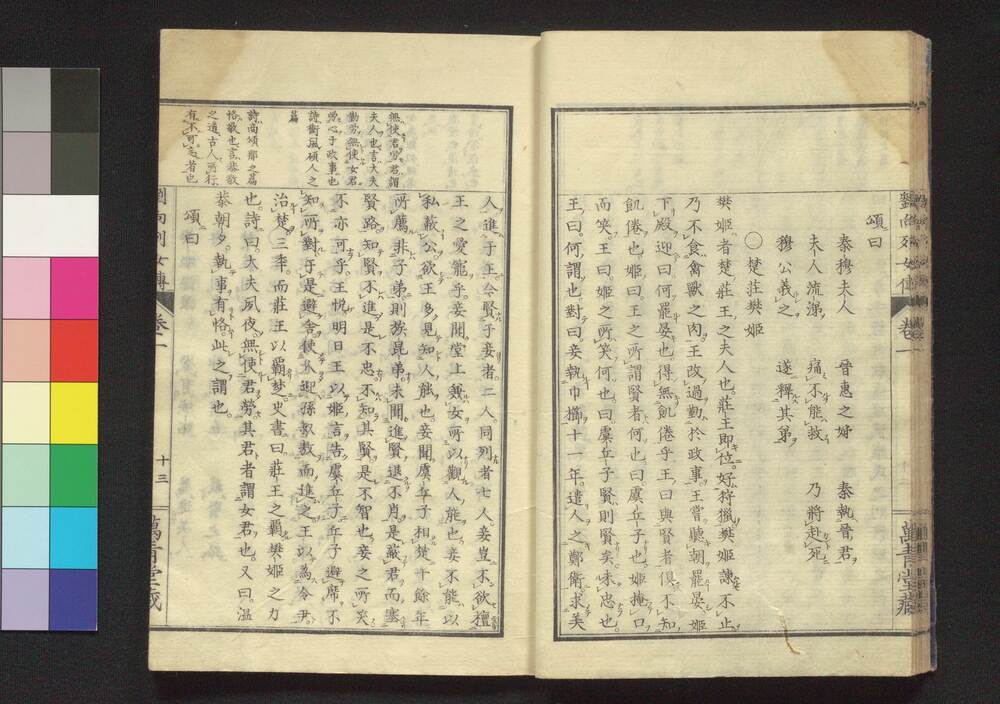 頌曰
秦穆夫人　晉惠之姊　秦執晉君
夫人流涕　痛不能救　乃將赴死
穆公義之　遂釋其弟
〇楚莊樊姬
樊姬者楚莊王之夫人也。莊王即位。好狩獵。樊姬諫不止
乃不食禽獸之肉。王改過勤於政事。王嘗聽朝罷晏。姬
下殿迎曰何罷晏也得無飢倦乎王曰與賢者俱。不知
飢倦也姬曰。王之所謂賢者何也曰。虞丘子也。姬掩口
而笑。王曰姬之所笑。何也曰虞丘子賢則賢矣。未忠也。
王曰。何謂也。對曰。妾執巾櫛十一年。遣人之鄭衛求美
人。進于王。今賢于妾者。二人。同列者七人。妾豈不欲擅
王之愛寵乎。妾聞。堂上兼女。所以觀人能也。妾不能以
私蔽公。欲王多見知人能也。妾聞虞丘子相楚十餘年
所薦非子弟則族昆弟。未聞進賢退不肖。是蔽君而塞
賢路。知賢不進。是不忠。不知其賢。是不智也。妾之所笑
不亦可乎。王悅明日王以姬言告虞丘子。丘子避席。不
知所對。于是避舍。使人迎孫叔敖而進之。王以為令尹。
治楚。三季。而莊王以霸。楚史書曰。莊王之霸。樊姬之力
也。詩曰。大夫夙夜。無使君勞。其君者謂女君也。又曰。溫
恭朝夕。執事有恪。此之謂也。
頌曰
無使君勞君謂
夫人也言大夫
勤勞無使女君
勞心于政事也
詩衛風碩人之
篇
詩商頌那之篇
恪敬也言恭敬
之道古人所行
有不可忘者也
劉向列女傳　卷二　十三　萬青堂藏